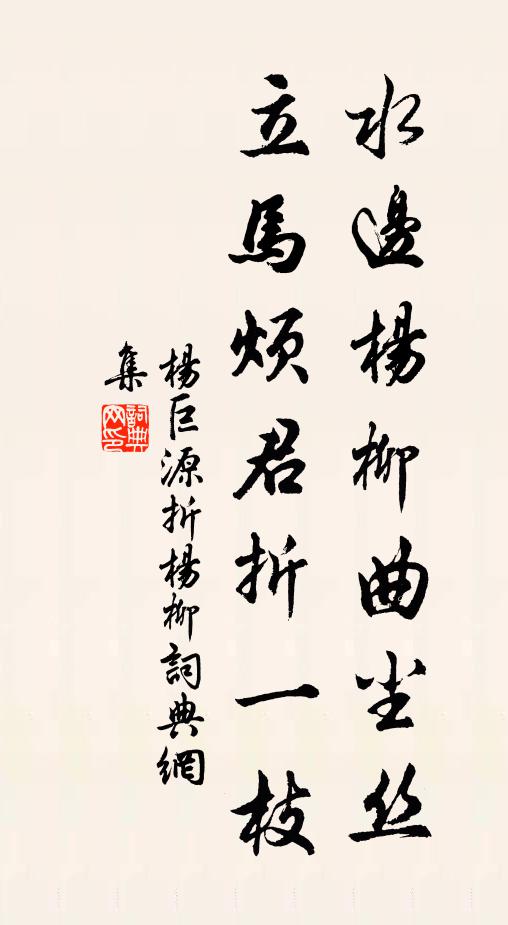 水邊楊柳曲尘丝
立馬煩君折一枝
楊巨源折楊柳詞典網
集
詞典
网印